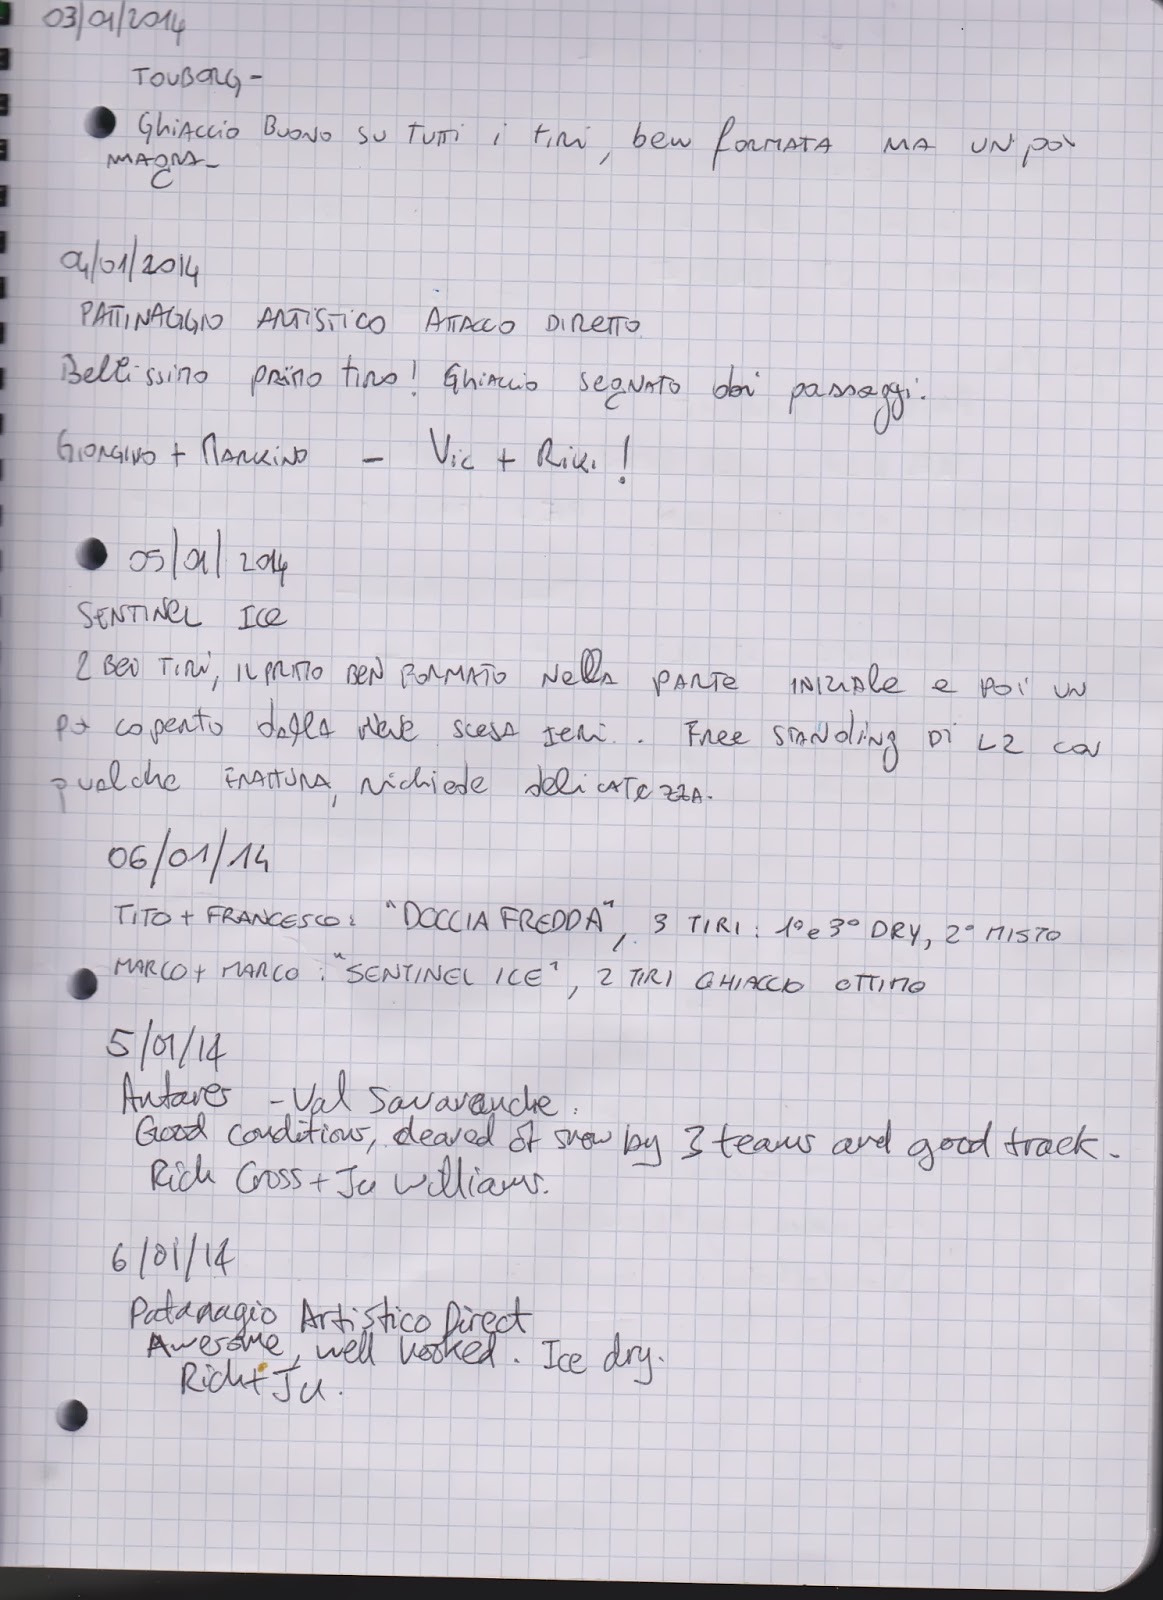 03/01/2014
TOUBORG -
Ghiaccio Buono su Tutti i tiri, ben formata ma un pò
MAGRA -
04/01/2014
PATTINAGGIO ARTISTICO ATTACCO DIRETTO
Bellissimo primo tiro! Ghiaccio segnato dai passaggi.
Giorgino + Markino - Vic + Riki!
05/01/2014
SENTINEL ICE
2 Bei TIRI, il primo BEN FORMATO Nella PARTE INIZIALE e poi un
pò coperto dalla neve scesa ieri.. Free STANding Di L2 con
qualche FRATTURA, richiede delicatezza.
06/01/14
TITO + FRANCESCO: "DOCCIA FREDDA", 3 TIRI: 1° e 3° DRY, 2° MISTO
MARCO + MARCO: "SENTINEL ICE", 2 TIRI GHIACCIO OTTIMO
5/01/14
Antares - Val Savaranche.
Good conditions, cleared of snow by 3 teams and good track.
Rich Cross + Ju Williams.
6/01/14
Patanagio Artistico Direct
Awesome, well hooked. Ice dry.
Rich + Ju.